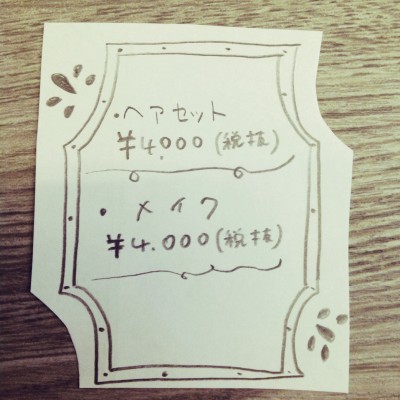 ・ヘアセット
¥4,000(税抜)
・メイク
¥4.000(税抜)